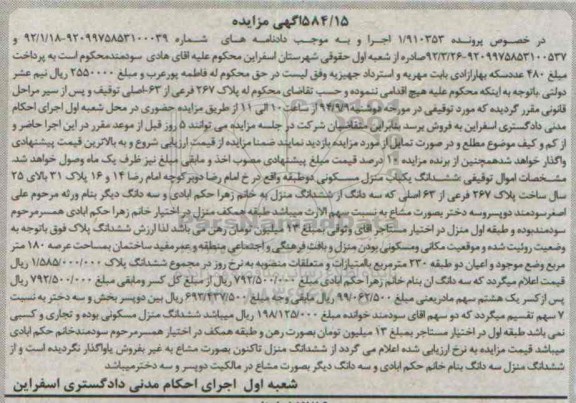 ۵۸۴/۱۵آگهی مزایده
در خصوص پرونده ۱/۹۱۰۳۵۳ اجرا و به موجب دادنامه های شماره ۹۲۰۹۹۷۵۸۵۳۱۰۰۰۳۹-۹۲/۱/۱۸ و
۹۲۰۹۹۷۵۸۵۳۱۰۰۵۳۷-۹۲/۳/۲۶صادره از شعبه اول حقوقی شهرستان اسفراین محکوم علیه آقای هادی سودمندمحکوم است به پرداخت
مبلغ ۴۸۰ عددسکه بهارآزادی بابت مهریه و استرداد جهیزیه وفق لیست در حق محکوم له فاطمه پورعرب و مبلغ ۲۵۵۰۰۰۰ ریال نیم عشر
دولتی باتوجه به اینکه محکوم علیه هیچ اقدامی ننموده و حسب تقاضای محکوم له پلاک ۲۶۷ فرعی از ۶۳-اصلی توقیف و پس از سیر مراحل
قانونی مقرر گردیده که مورد توقیفی در مورخه دوشنبه ۹۴/۹/۹ از ساعت ۱۰ الی ۱۱ از طریق مزایده حضوری در محل شعبه اول اجرای احکام
مدنی دادگستری اسفراین به فروش برسد بنابراین متقاضیان شرکت در جلسه مزایده می توانند ۵ روز قبل از موعد مقرر در این اجرا حاضر و
از کم و کیف موضوع مطلع و در صورت تمایل از مورد مزایده بازدید نمایند ضمنا مزایده از قیمت ارزیابی شروع و به بالاترین قیمت پیشنهادی
واگذار خواهد شدهمچنین از برنده مزایده ۱۰ درصد قیمت مبلغ پیشنهادی مصوب اخذ و مابقی مبلغ نیز ظرف یک ماه وصول خواهد شد.
مشخصات اموال توقیفی: ششدانگ یکباب منزل مسکونی دوطبقه واقع در خ امام رضا دوبرکوچه امام رضا ۱۴ و ۱۶ پلاک ۳۱ بالای ۲۵
سال ساخت پلاک ۲۶۷ فرعی از ۶۳ اصلی که سه دانگ از ششدانگ منزل به خانم زهرا حکم آبادی و سه دانگ دیگر بنام ورثه مرحوم علی
اصغرسودمند دوپسروسه دختر بصورت مشاع به نسبت سهم الارث میباشد طبقه همکف منزل در اختیار خانم زهرا حکم ابادی همسرمرحوم
سودمندبوده و طبقه اول منزل در اختیار مستاجر آقای وثوقی بمبلغ ۱۳ میلیون تومان رهن می باشد لذا ارزش ششدانگ پلاک فوق باتوجه به
وضعیت روئیت شده و موقعیت مکانی ومسکونی بودن منزل و بافت فرهنگی و اجتماعی منطقه و عمرمفید ساختمان بمساحت عرصه ۱۸۰ متر
مربع وضع موجود و اعیان دو طبقه ۲۳۰ مترمربع باامتیازات و متعلقات منصوبه به نرخ روز در مجموع ششدانگ پلاک ۱/۵۸۵/۰۰۰/۰۰۰
قیمت اعلام میگردد که سه دانگ ان بنام خانم زهرا حکم آبادی مبلغ ۷۹۲/۵۰۰/۰۰۰ ریال از مبلغ کل کسر ومابقی مبلغ ۷۹۲/۵۰۰/۰۰۰ ریال
پس از کسر یک هشتم سهم مادریعنی مبلغ ۹۹/۰۶۲/۵۰۰ ریال مابقی وجه مبلغ ۶۹۳/۴۳۷/۵۰۰ ریال بین دوپسر بخش و سه دختر به نسبت
۷ سهم تقسیم میگردد که دو سهم اقای سودمند خوانده مبلغ ۱۹۸/۱۲۵/۰۰۰ ریال میباشد ششدانگ منزل مسکونی بوده و تجاری و کسبی
نمی باشد طبقه اول در اختیار مستاجر بمبلغ ۱۳ میلیون تومان بصورت رهن و طبقه همکف در اختیار همسرمرحوم سودمندخانم حکم ابادی
میباشد قیمت مزایده به نرخ ارزیابی شده اعلام می گردد از ششدانگ منزل تاکنون بصورت مشاع به غیر بفروش یاواگذار نگردیده است و از
ششدانگ منزل سه دانگ بنام خانم حکم ابادی و سه دانگ دیگر بصورت مشاع در مالکیت دوپسر و سه دخترمیباشد
شعبه اول اجرای احکام مدنی دادگستری اسفراین